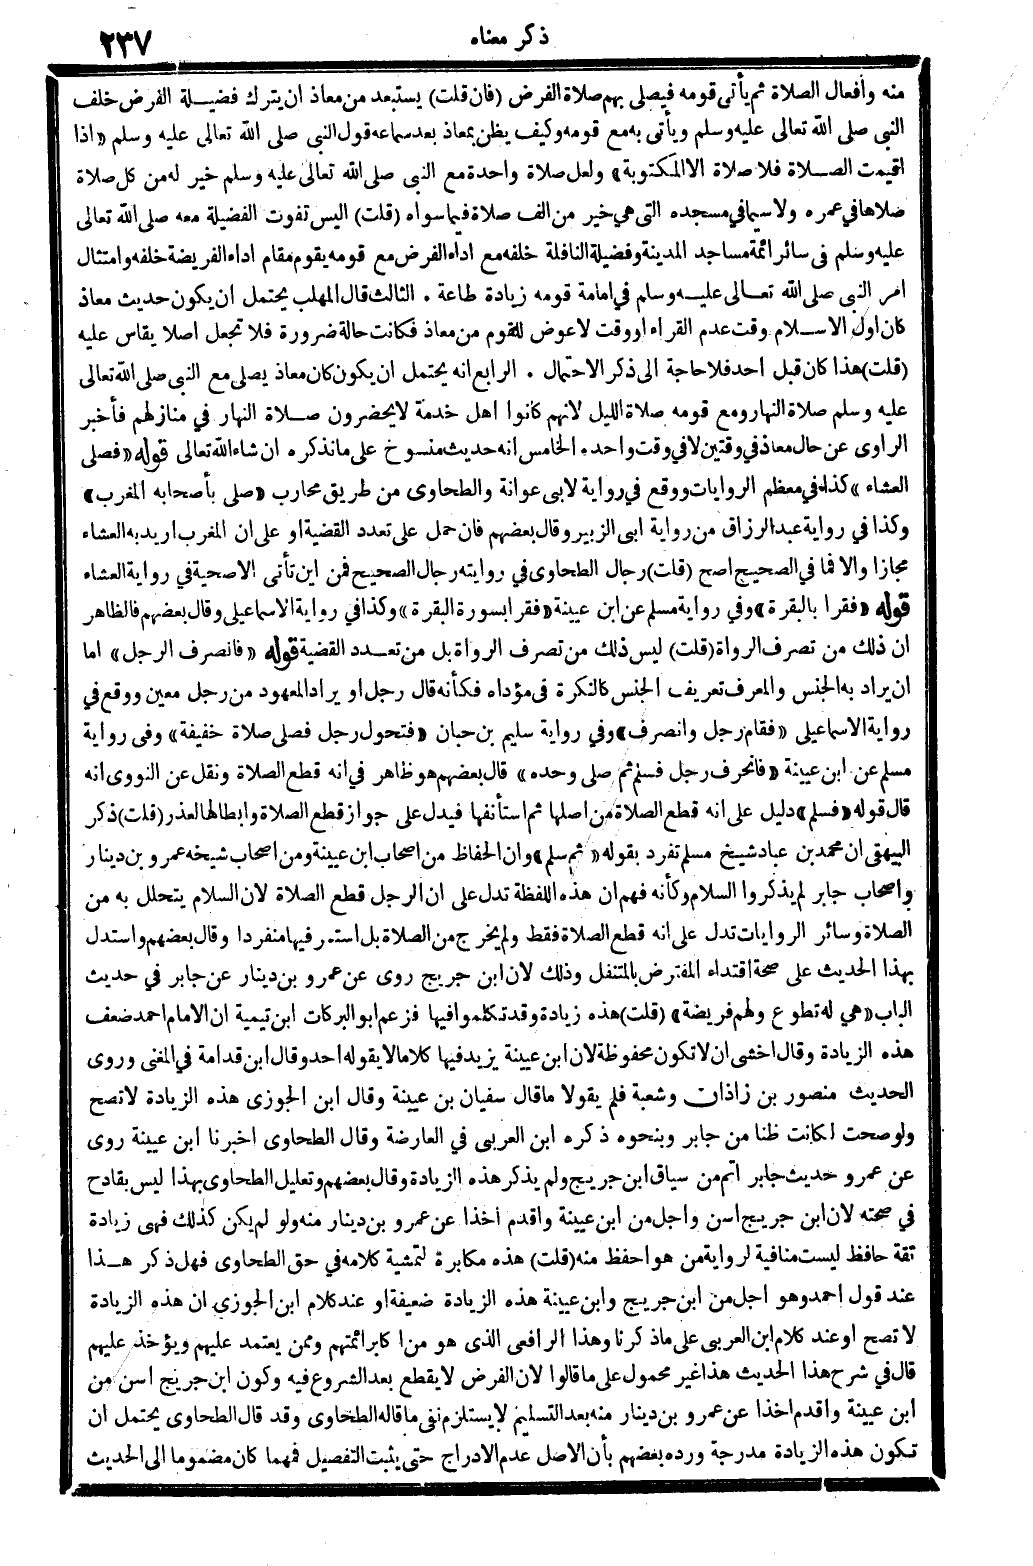 ذكر معناه
٢٣٧
منه وأفعال الصلاة ثم يأتى قومه فيصلى بهم صلاة الفرض (فان قلت) يستبعد من معاذ ان يترك فضيلة الفرض خلف
النبى صلى الله تعالى عليه وسلم ويأتى به مع قومه وكيف يظن بمعاذ بعد سماعه قول النبى صلى الله تعالى عليه وسلم «اذا
اقيمت الصلاة فلا صلاة الا المكتوبة» ولعل صلاة واحدة مع النبى صلى الله تعالى عليه وسلم خير له من كل صلاة
صلاها في عمره ولا سيما في مسجده التى هي خير من الف صلاة فيما سواه (قلت) اليس تفوت الفضيلة معه صلى الله تعالى
عليه وسلم فى سائر ائمة مساجد المدينة وفضيلة النافلة خلفه مع اداء الفرض مع قومه يقوم مقام اداء الفريضة خلفه وامتثال
امر النبى صلى الله تعالى عليه وسلم في امامة قومه زيادة طاعة . الثالث قال المهلب يحتمل ان يكون حديث معاذ
كان اول الاسلام وقت عدم القراء او وقت لا عوض للقوم من معاذ فكانت حالة ضرورة فلا تجعل اصلا يقاس عليه
(قلت) هذا كان قبل احد فلا حاجة الى ذكر الاحتمال . الرابع انه يحتمل ان يكون كان معاذ يصلى مع النبى صلى الله تعالى
عليه وسلم صلاة النهار ومع قومه صلاة الليل لانهم كانوا اهل خدمة لا يحضرون صلاة النهار في منازلهم فأخبر
الراوى عن حال معاذ في وقتين لا في وقت واحد . الخامس انه حديث منسوخ على ما نذكره ان شاء الله تعالى قوله «فصلى
العشاء» كذا في معظم الروايات ووقع في رواية لابى عوانة والطحاوى من طريق محارب «صلى بأصحابه المغرب»
وكذا في رواية عبد الرزاق من رواية ابى الزبير وقال بعضهم فان حمل على تعدد القضية او على ان المغرب اريد به العشاء
مجازا والا فما في الصحيح اصح (قلت) رجال الطحاوى في روايته رجال الصحيح فمن اين تأتى الاصحية في رواية العشاء
قوله «فقرا بالبقرة» وفي رواية مسلم عن ابن عيينة «فقرا بسورة البقرة» وكذا في رواية الاسماعيلى وقال بعضهم فالظاهر
ان ذلك من تصرف الرواة (قلت) ليس ذلك من تصرف الرواة بل من تعدد القضية قوله «فانصرف الرجل» اما
ان يراد به الجنس والمعرف تعريف الجنس كالنكرة فى مؤداه فكأنه قال رجل او يراد المعهود من رجل معين ووقع في
رواية الاسماعيلى «فقام رجل وانصرف» وفي رواية سليم بن حبان «فتحول رجل فصلى صلاة خفيفة» وفى رواية
مسلم عن ابن عيينة «فانحرف رجل فسلم ثم صلى وحده» قال بعضهم هو ظاهر في انه قطع الصلاة ونقل عن النووى انه
قال قوله «فسلم» دليل على انه قطع الصلاة من اصلها ثم استأنفها فيدل على جواز قطع الصلاة وابطالها لعذر (قلت) ذكر
البيهقى ان محمد بن عباد شيخ مسلم تفرد بقوله «ثم سلم» وان الحفاظ من اصحاب ابن عيينة ومن اصحاب شيخه عمرو بن دينار
واصحاب جابر لم يذكروا السلام وكأنه فهم ان هذه اللفظة تدل على ان الرجل قطع الصلاة لان السلام يتحلل به من
الصلاة وسائر الروايات تدل على انه قطع الصلاة فقط ولم يخرج من الصلاة بل استمر فيها منفردا وقال بعضهم واستدل
بهذا الحديث على صحة اقتداء المفترض بالمتنفل وذلك لان ابن جريج روى عن عمرو بن دينار عن جابر في حديث
الباب «هي له تطوع ولهم فريضة» (قلت) هذه زيادة وقد تكلموا فيها فزعم ابو البركات ابن تيمية ان الامام احمد ضعف
هذه الزيادة وقال اخشى ان لا تكون محفوظة لان ابن عيينة يزيد فيها كلاما لا يقوله احد وقال ابن قدامة في المغنى وروى
الحديث منصور بن زاذان وشعبة فلم يقولا ما قال سفيان بن عيينة وقال ابن الجوزى هذه الزيادة لا تصح
ولو صحت لكانت ظنا من جابر وبنحوه ذكره ابن العربى في العارضة وقال الطحاوى اخبرنا ابن عيينة روى
عن عمرو حديث جابر اتم من سياق ابن جريج ولم يذكر هذه الزيادة وقال بعضهم وتعليل الطحاوى بهذا ليس بقادح
في صحته لان ابن جريج اسن واجل من ابن عيينة واقدم اخذا عن عمرو بن دينار منه ولو لم يكن كذلك فهى زيادة
ثقة حافظ ليست منافية لرواية من هو احفظ منه (قلت) هذه مكابرة لتمشية كلامه في حق الطحاوى فهل ذكر هذا
عند قول احمد وهو اجل من ابن جريج وابن عيينة هذه الزيادة ضعيفة او عند كلام ابن الجوزى ان هذه الزيادة
لا تصح او عند كلام ابن العربى على ما ذكرنا وهذا الرافعى الذى هو من اكابر ائمتهم وممن يعتمد عليهم ويؤخذ عليهم
قال في شرح هذا الحديث هذا غير محمول على ما قالوا لان الفرض لا يقطع بعد الشروع فيه وكون ابن جريج اسن من
ابن عيينة واقدم اخذا عن عمرو بن دينار منه بعد التسليم لا يستلزم نفى ما قاله الطحاوى وقد قال الطحاوى يحتمل ان
تكون هذه الزيادة مدرجة ورده بعضهم بأن الاصل عدم الادراج حتى يثبت التفصيل فمهما كان مضموما الى الحديث